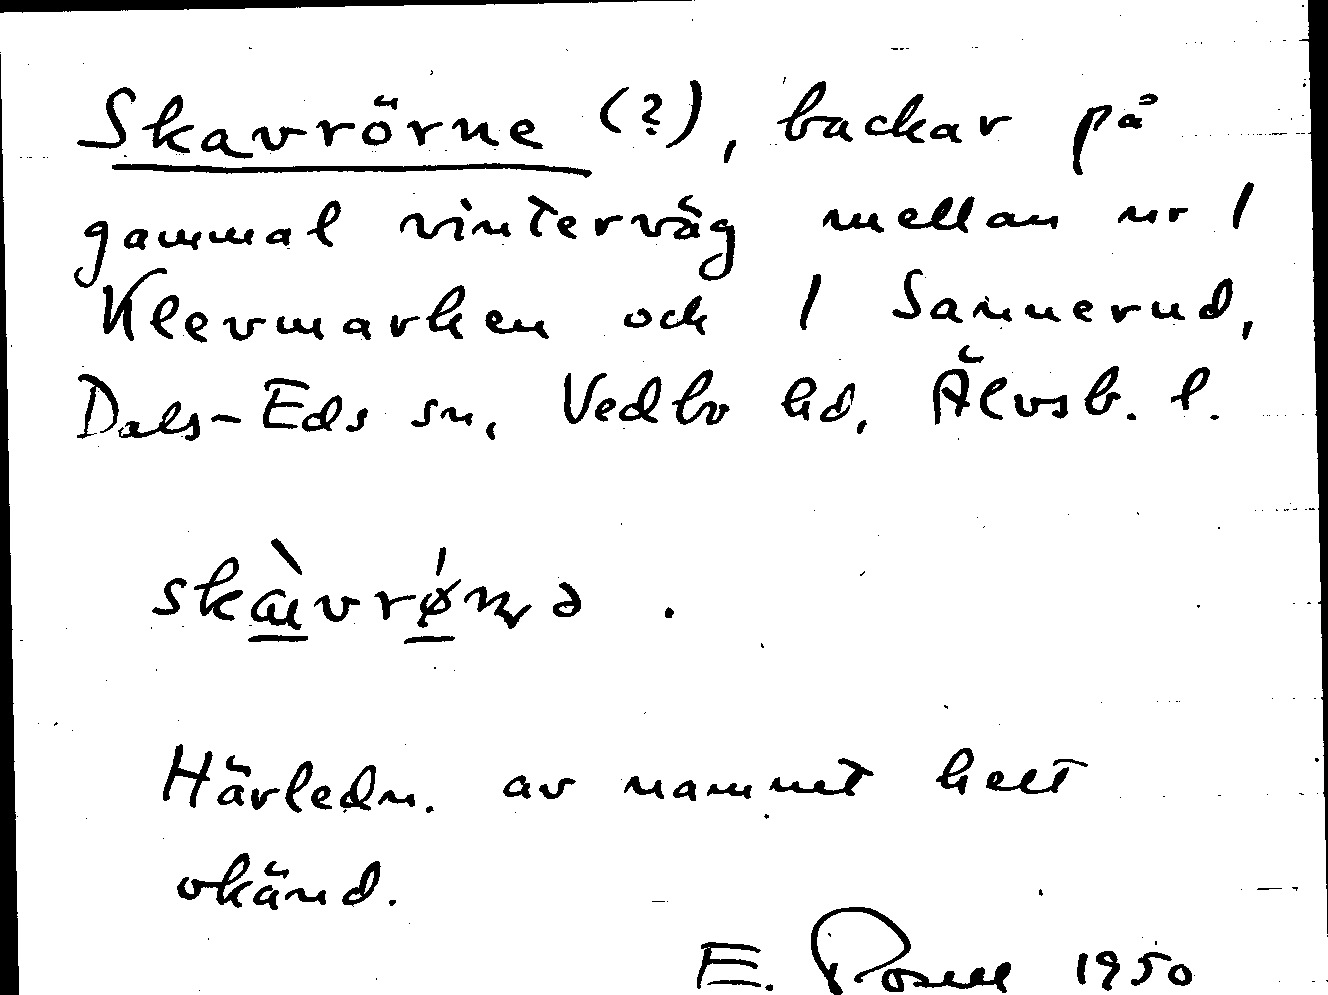 Skavrörne (?), backar på
gammal vinterväg mellan nr 1
Klevmarken och 1 Sannerud,
Dals-Eds sn, Vedbo hd, Älvsb. l.
Härledn. av namnet helt
okänd.
E. Rosell 1950